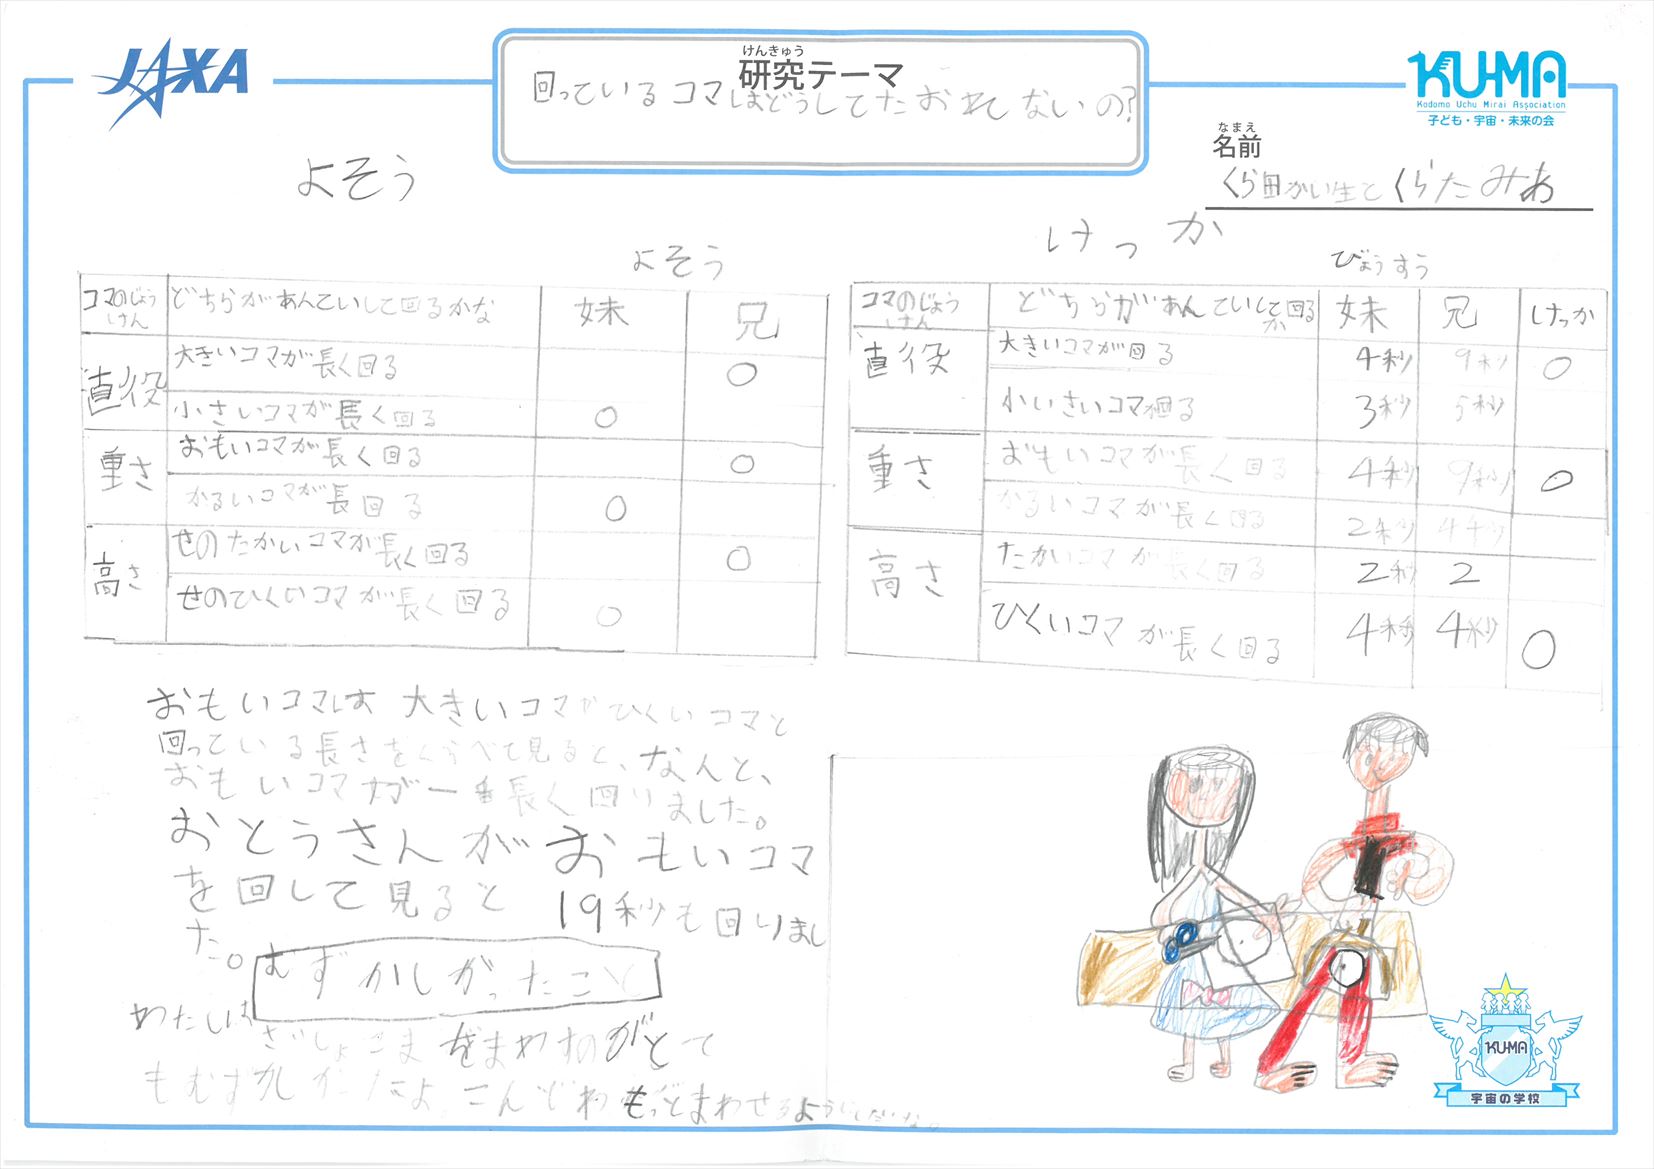 JAXA
けんきゅう
研究テーマ
回っているコマはどうしてたおれてないの?
KU-MA
Kodomo Uchu Mirai Association
子ども・宇宙・未来の会
なまえ
名前
くら田かい生とくらたみあ
よそう
よそう
コマのじょうけん どちらがあんていして回るかな 妹 兄
直役 大きいコマが長く回る ○
小さいコマが長く回る ○
重さ おもいコマが長く回る ○
かるいコマが長回る ○
高さ せのたかいコマが長く回る ○
せのひくいコマが長く回る ○
けっか
びょうすう
コマのじょうけん どちらがあんていして回るか 妹 兄 けっか
直役 大きいコマが回る 4秒 9秒 ○
小いさいコマ回る 3秒 5秒
重さ おもいコマが長く回る 4秒 9秒 ○
かるいコマが長く回る 2秒 4秒
高さ たかいコマが長く回る 2秒 2
ひくいコマが長く回る 4秒 4秒 ○
おもいコマは大きいコマやひくいコマと
回っている長さをくらべて見ると、なんと、
おもいコマが一番長く回りました。
おとうさんがおもいコマ
を回して見ると 19秒も回りまし
た。
むずかしがったこと
わたしは
さいしょこまをまわすのがとて
もむずかしかたよ。こんどわもっとまわせるようにしたいな。
KU-MA
宇宙の学校